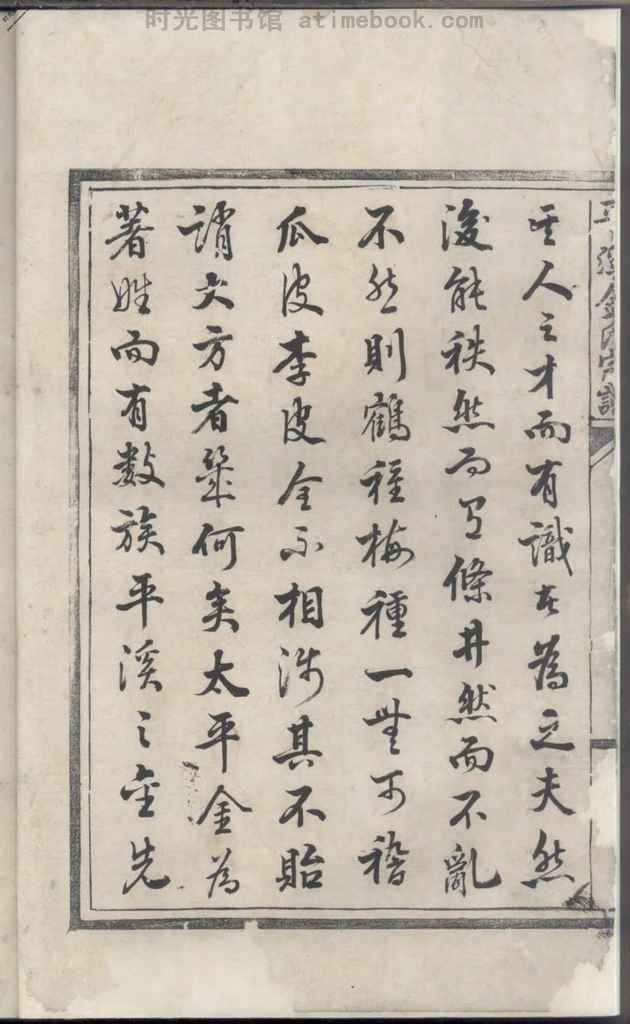 时光图书馆 atimebook.com
平溪金氏宗譜
其人之才而有識者為之夫然
後能秩然而有條井然而不亂
不然則鶴種梅種一無可稽
瓜皮李皮全不相涉其不貽
誚大方者幾何矣太平金為
著姓而有數族平溪之金先
时光图书馆 atimebook.com